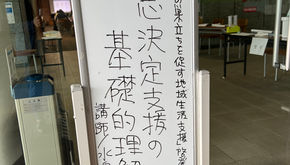 の巣立ちを促す地域生活支援
意思決定支援の
基礎的理解
講師